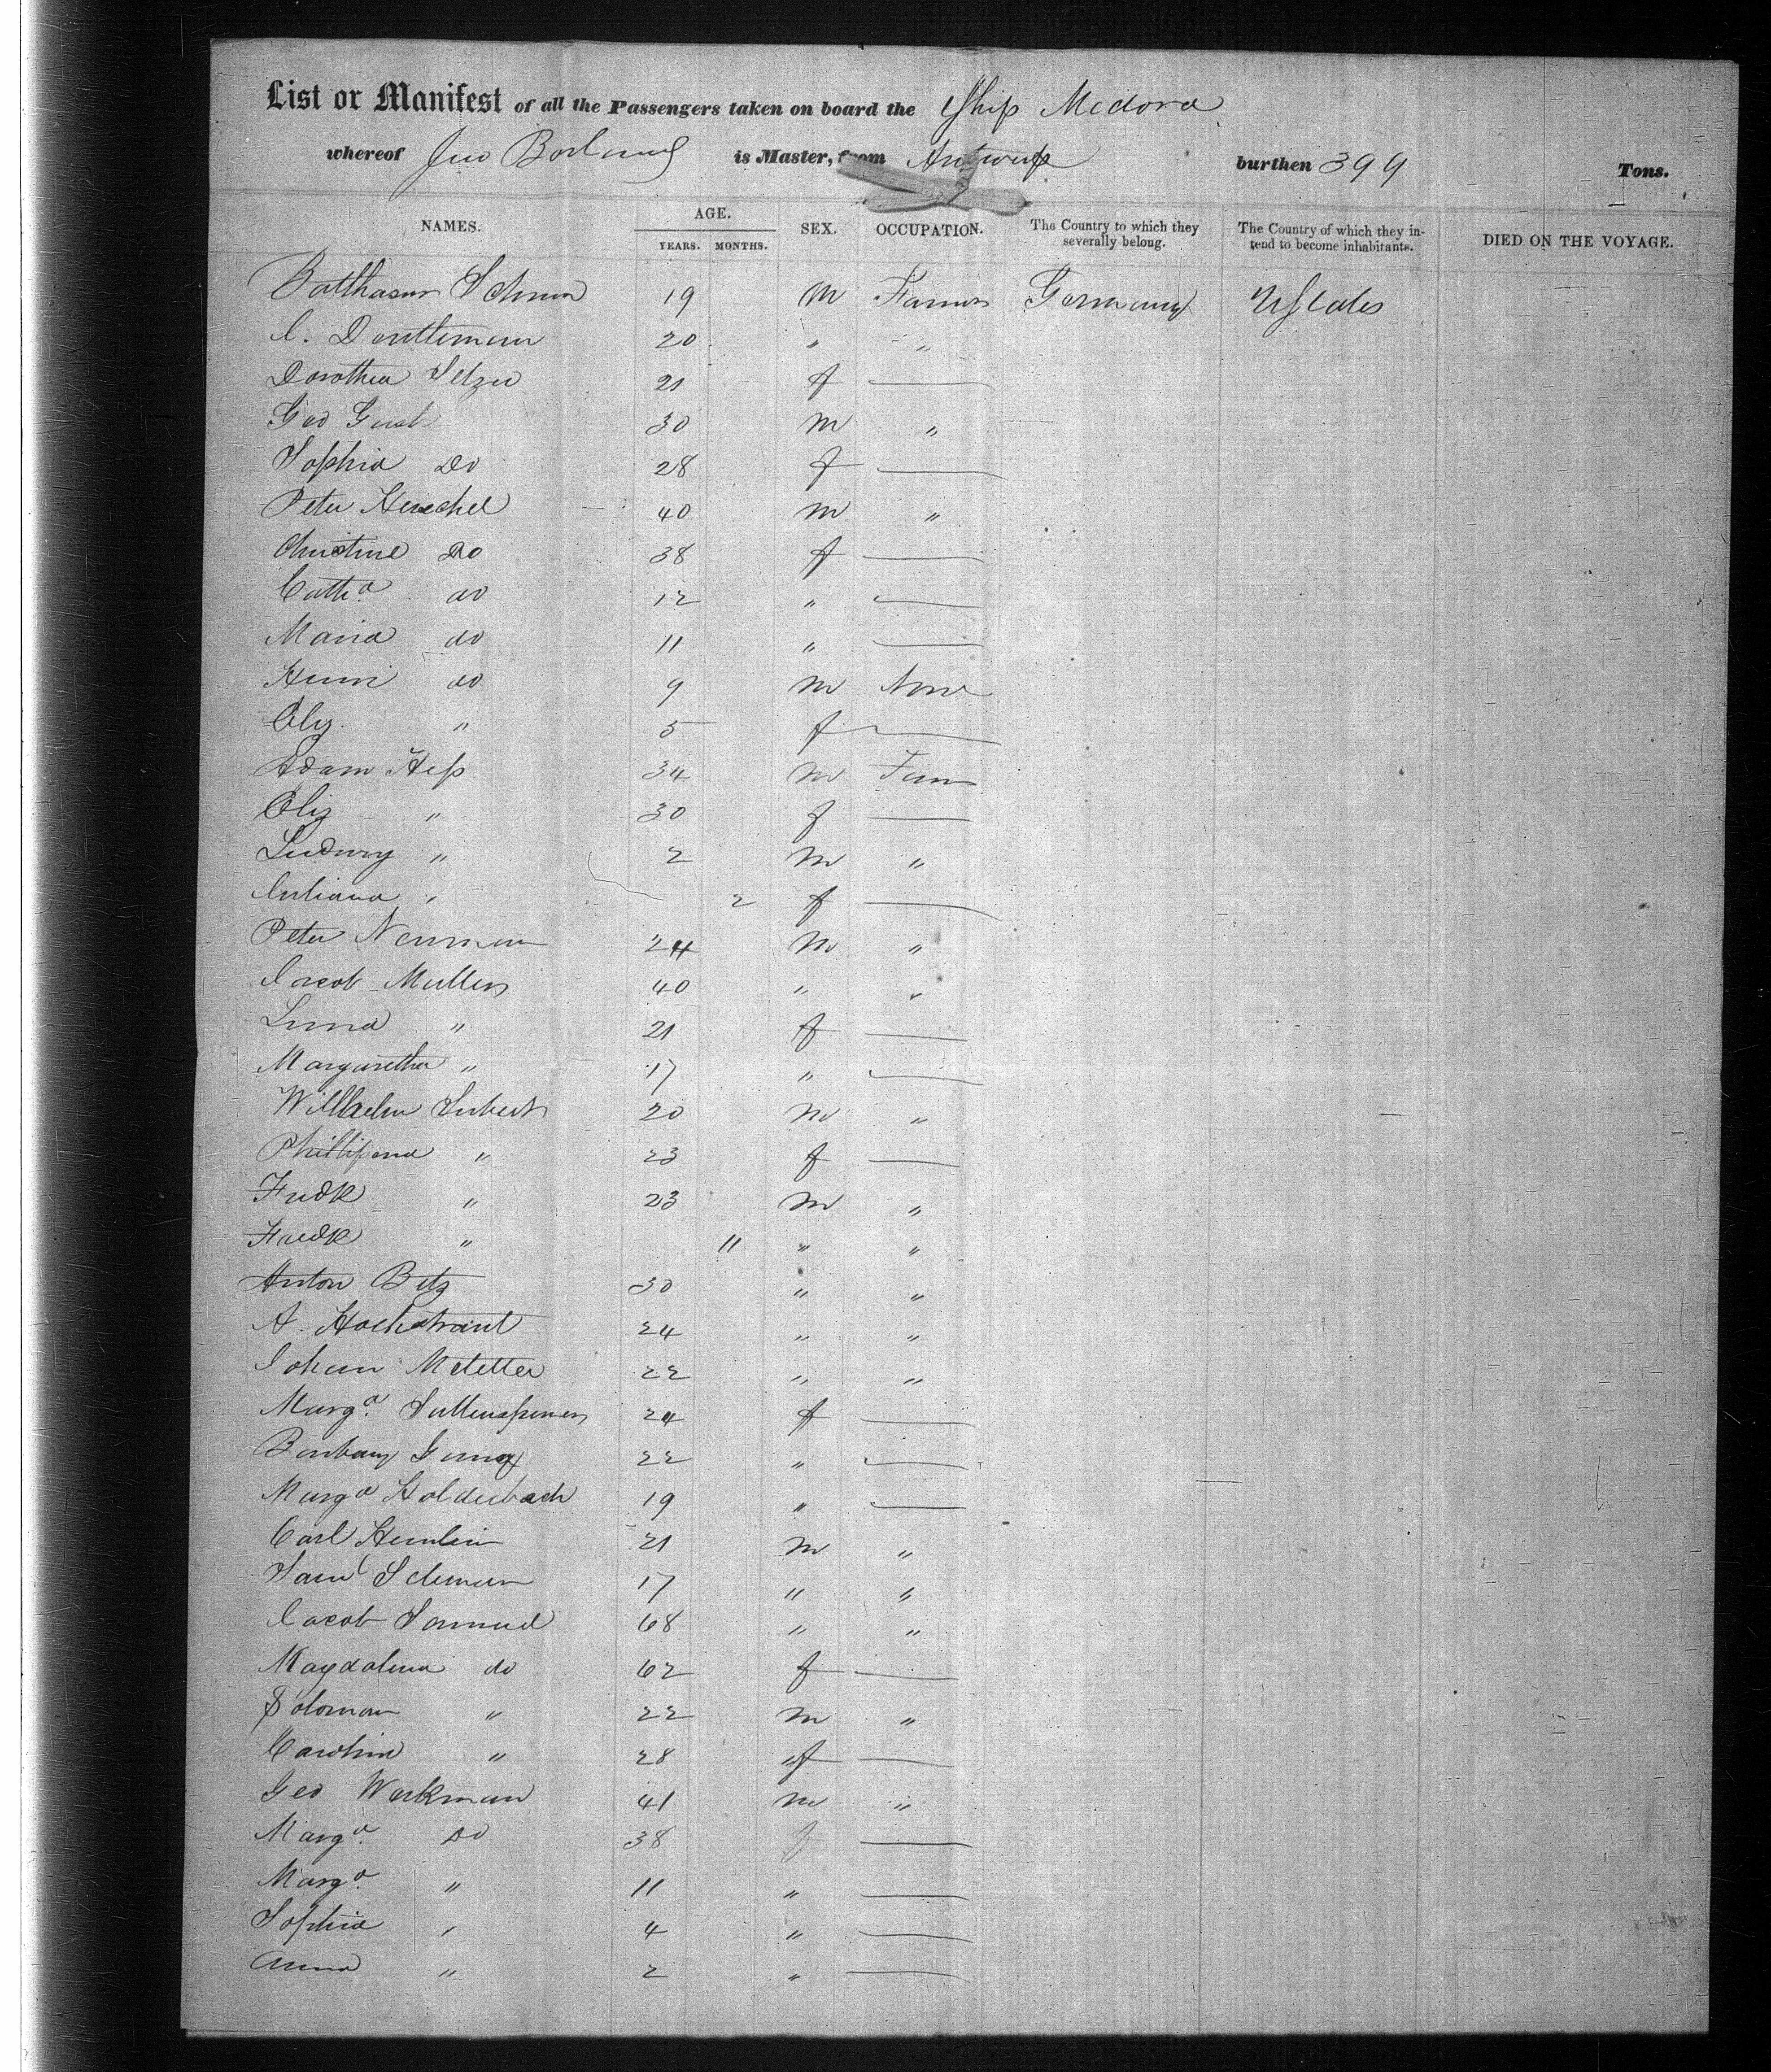 List or Manifest of all the Passengers taken on board the Ship Medora
whereof Jno is Master, from Antwerp burthen 399 Tons.
NAMES. AGE. YEARS. MONTHS. SEX. OCCUPATION. The Country to which they severally belong. The Country of which they intend to become inhabitants. DIED ON THE VOYAGE.
Balthasar 19 m Farmer Germany UStates
C. 20 " "
Dorothea 21 f —
Geo 30 m "
Sophia Do 28 f —
Peter Henchel 40 m "
Christine Do 38 f —
Catha. do 12 " —
Maria do 11 " —
Henri do 9 m None
Eliz. " 5 f —
Adam Hess 34 m Farm
Eliz " 30 f —
Ludwig " 2 m "
Juliana " 2 f —
Peter Newman 24 m "
Jacob Muller 40 " "
" 21 f —
Margaretha " 17 " —
Willhelm 20 m "
Phillipena " 23 f —
Fredk " 23 m "
Fredk " 11 " "
Anton Betz 30 " "
A. Hochstraut 24 " "
Johan 22 " "
Marga. 24 f —
22 " —
Marga Holderbach 19 " —
Carl 21 m "
Saml 17 " "
Jacob Samuel 68 " "
Magdalena do 62 f —
Soloman " 22 m "
Carolin " 28 f —
Geo Workman 41 m "
Marga. Do 38 f —
Marga. " 11 " —
Sophia " 4 " —
Anna " 2 " —